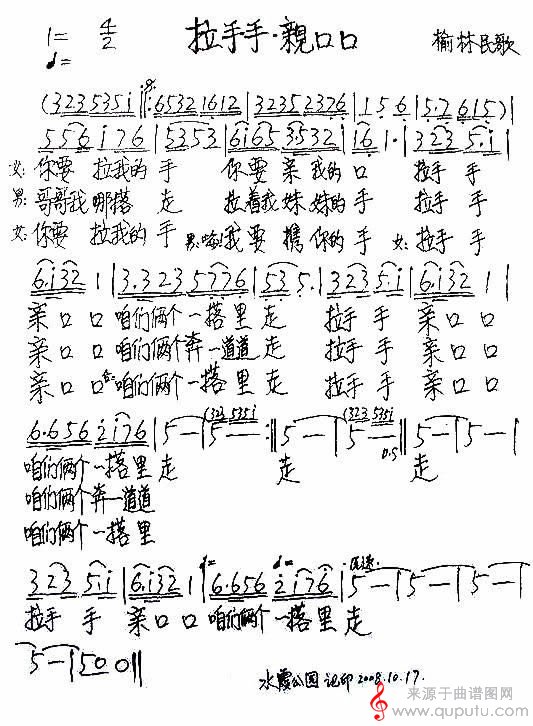 1= 4/2 拉手手·親口口 榆林民歌
♩=
(323535i‖:65321612|32352376|1 5 6|5·7 615)|
556 i76|5353|6i65 3532|16 1·|323 5·i|
女:你要 拉我的 手 你要 亲我的 口 拉手 手
男:哥哥我 哪搭 走 拉着我 妹妹的 手 拉手 手
女:你要 拉我的 手 男:我要 携你的 手 女:拉手 手
6·i32 1|3·323 5776|53 5·|323 5·i|6·i32 1|
亲口 口 咱们俩个 一搭里 走 拉手 手 亲口 口
亲口 口 咱们俩个奔 一道道 走 拉手 手 亲口 口
亲口 口 合:咱们俩个 一搭里 走 拉手 手 亲口 口
(323 535i (323 535i
6·656 2i76|5—|5—:‖5—|5—‖5—|5—|
0·5
咱们俩个 一搭里 走 走 走
咱们俩个奔 一道道
咱们俩个 一搭里
323 5·i|6·i32 1|6·656 2i76|5—|5—|5—|
拉手 手 亲口 口 咱们俩个 一搭里 走
5—|50 0‖
水霞公园 记印 2008.10.17.
来源于曲谱图网
www.quputu.com